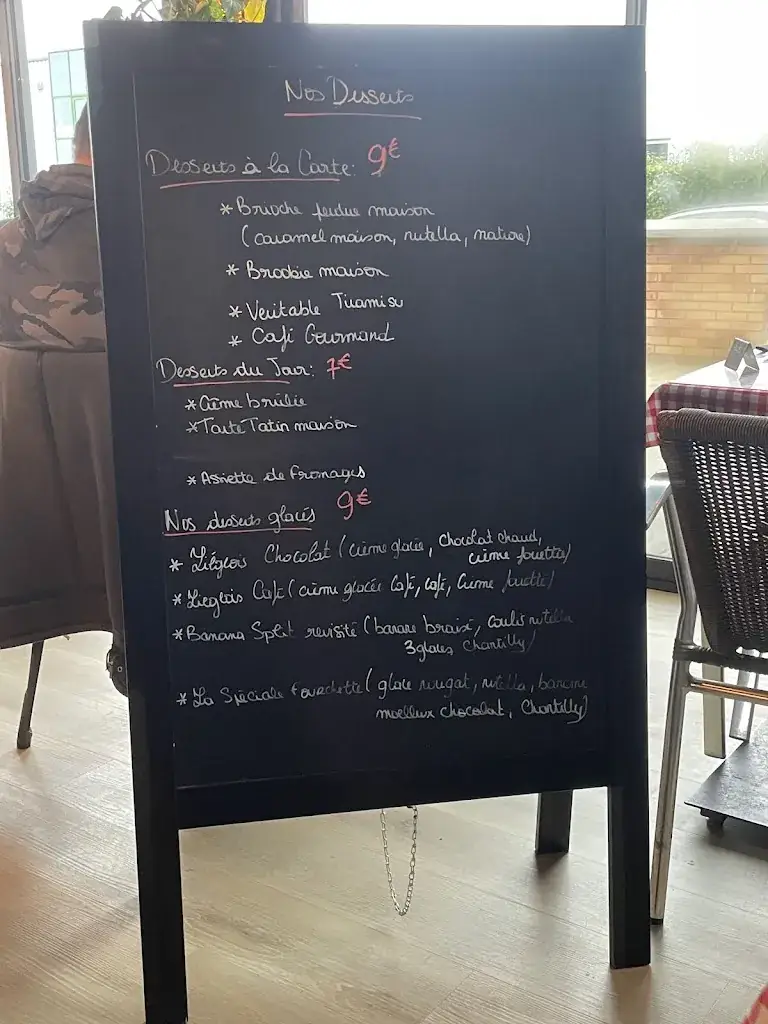 Nos Desserts
Desserts à la Carte: 9€
* Brioche perdue maison
(caramel maison, nutella, nature)
* Brookie maison
* Veritable Tiramisu
* Café Gourmand
Desserts du Jour: 7€
* Crème brûlée
* Tarte Tatin maison
* Assiette de fromages
Nos desserts glacés 9€
* Liégeois Chocolat (crème glacée, chocolat chaud,
crème fouettée)
* Liegeois Café (crème glacée café, café, crème fouettée)
* Banana Split revisité (banane braisé, coulis nutella
3 glaces Chantilly)
* La Spéciale Fourchette (glace nougat, nutella, banane
moelleux chocolat, Chantilly)